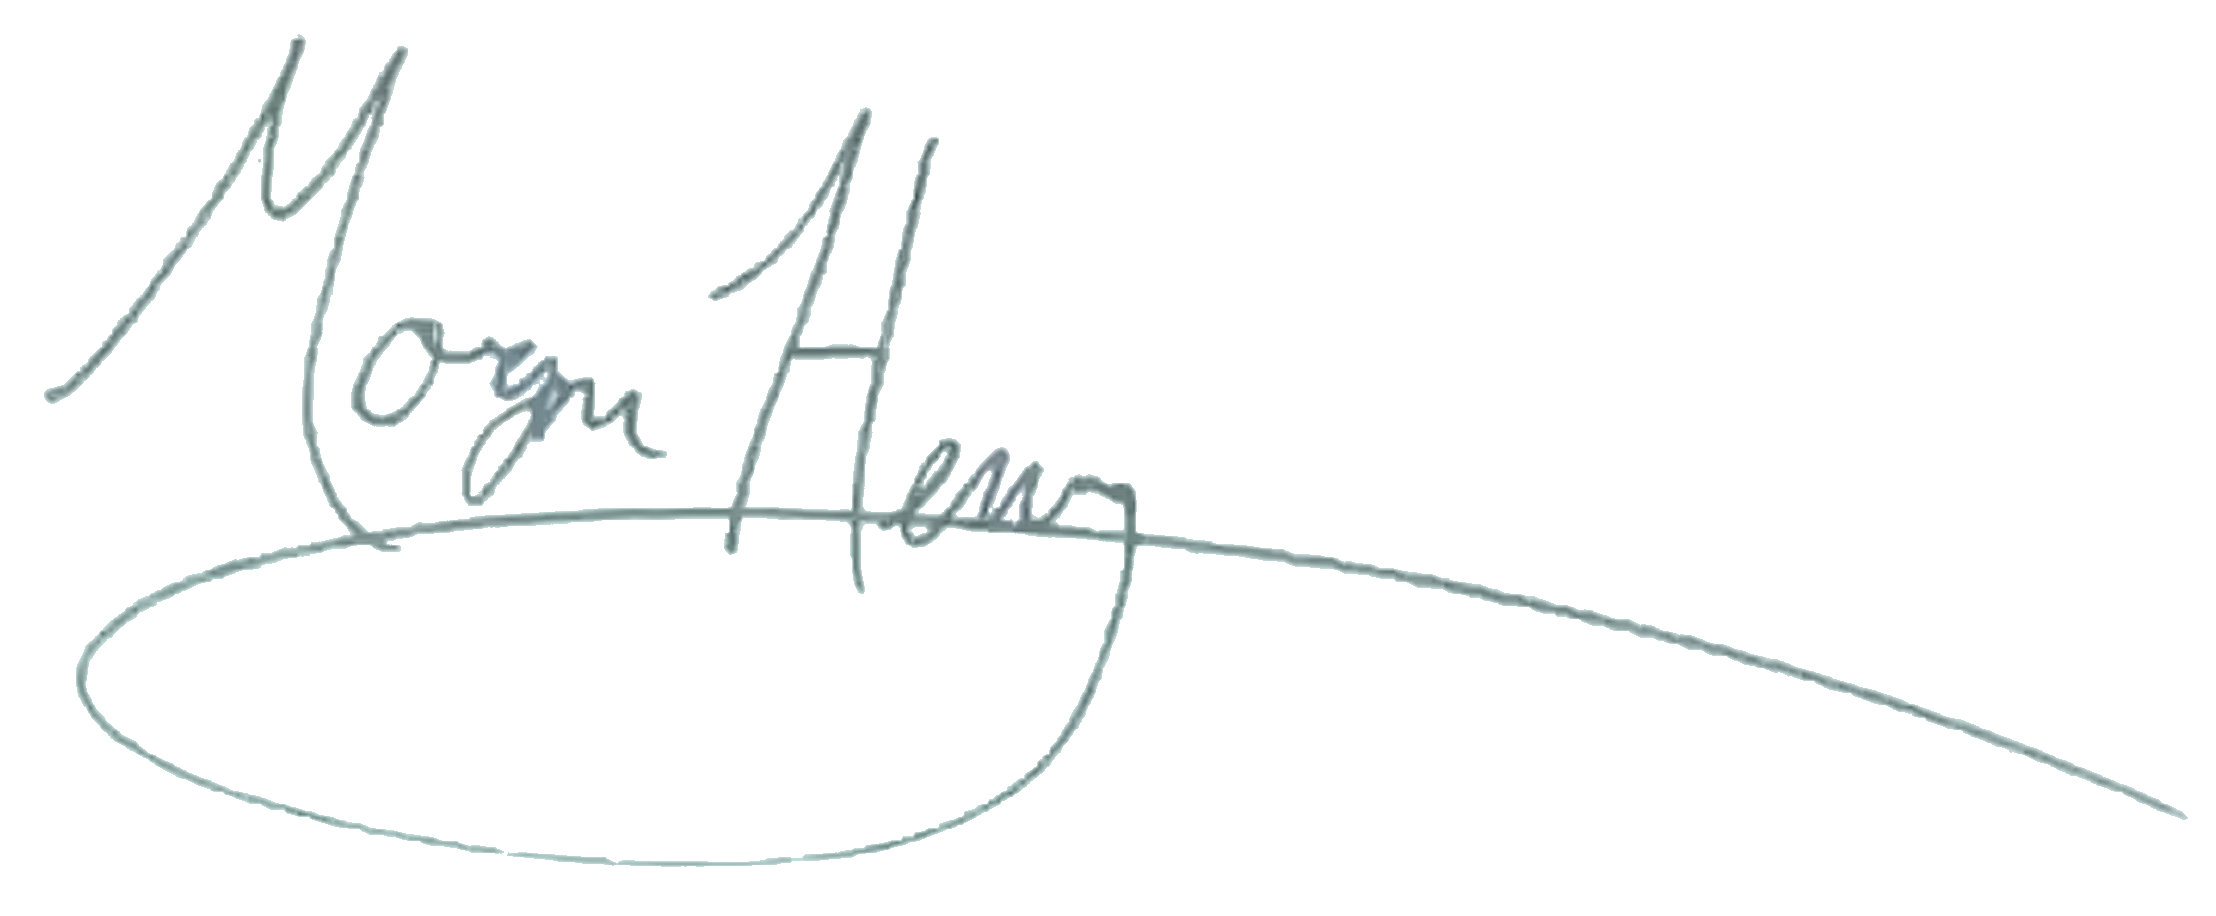 Morgan Henry